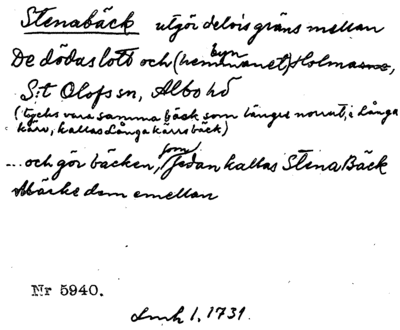 Stenabäck utgör delvis gräns mellan
De dödas lott och (hemmanet) byn Holma,
S:t Olofs sn, Albo hd
(tycks vara samma bäck som längre norrut, i Långa
kärr, kallas Långakärrsbäck)
...och gör bäcken, som sedan kallas Stena Bäck
Märke dem emellan
Nr 5940.
Lmk 1, 1731.